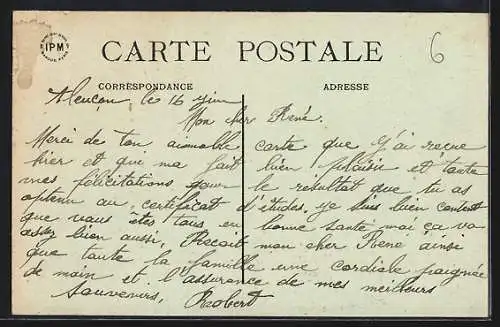 IPM
CARTE POSTALE
6
CORRESPONDANCE
ADRESSE
Alençon, le 16 Juin
Mon cher René.
Merci de ton aimable carte que j'ai reçue
hier et qui ma fait bien plaisir et toute
mes félicitations pour le résultat que tu as
obtenu au certificat d'études. je suis bien content
que vous êtes tous en bonne santé moi ça va
assez bien aussi, Reçoit mon cher René ainsi
que toute la famille une cordiale poignée
de main et l'assurance de mes meilleurs
Souvenirs, Robert